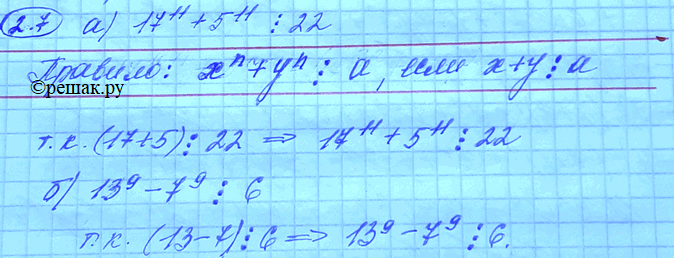 2.7 а) 17¹¹ + 5¹¹ ⋮ 22
Правило: xⁿ + yⁿ ⋮ a, если x + y ⋮ a
©решак.ру
т.к. (17+5) ⋮ 22 => 17¹¹ + 5¹¹ ⋮ 22
б) 13⁹ - 7⁹ ⋮ 6
т.к. (13-7) ⋮ 6 => 13⁹ - 7⁹ ⋮ 6.